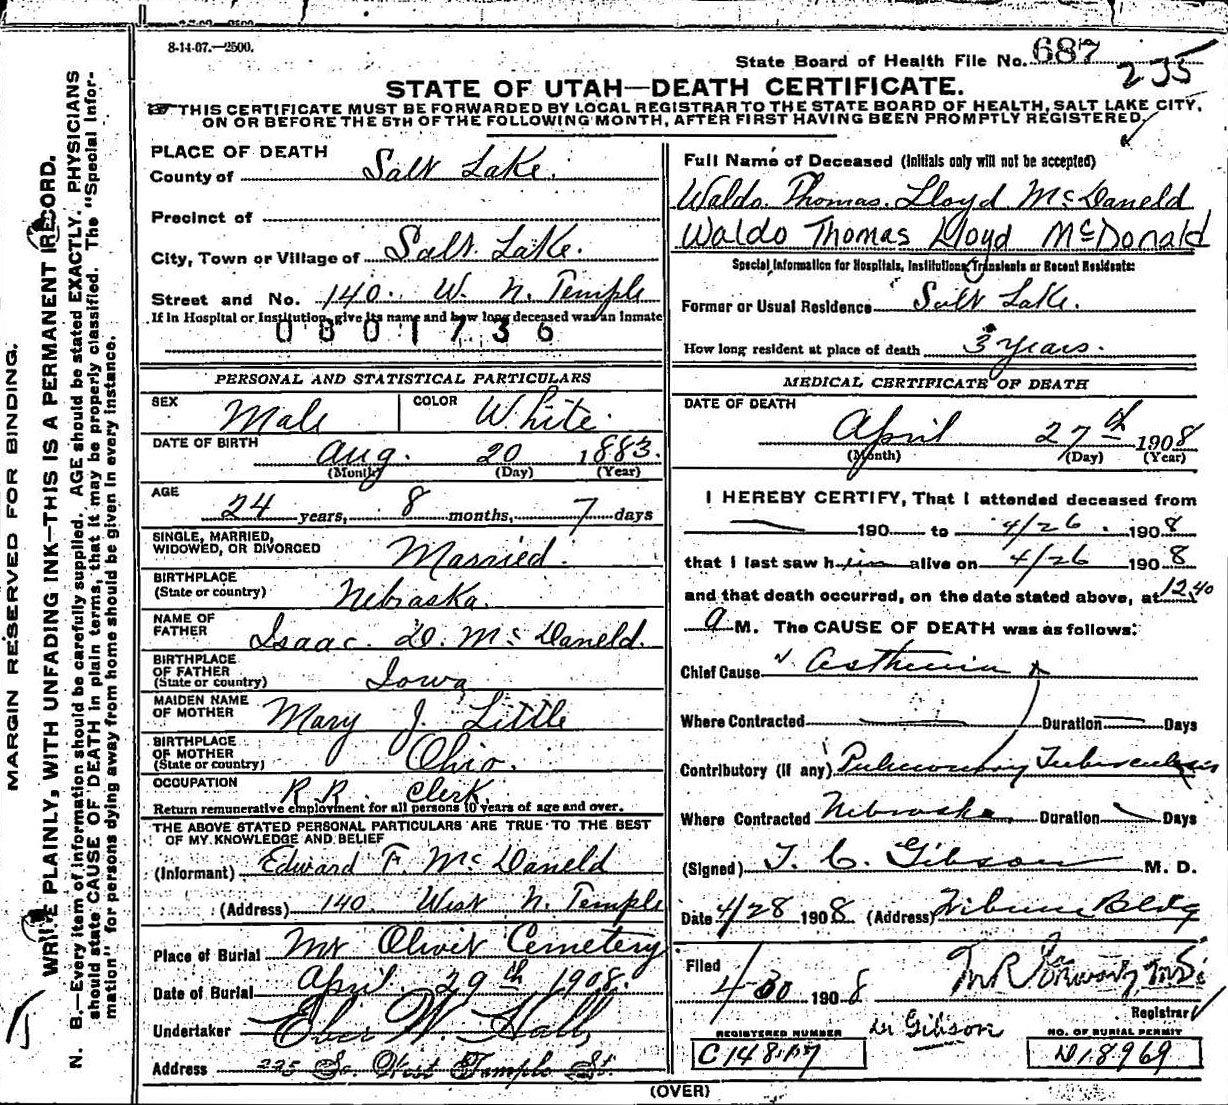 8-14-07.—2500.
State Board of Health File No. 687
235
STATE OF UTAH—DEATH CERTIFICATE.
THIS CERTIFICATE MUST BE FORWARDED BY LOCAL REGISTRAR TO THE STATE BOARD OF HEALTH, SALT LAKE CITY,
ON OR BEFORE THE 5TH OF THE FOLLOWING MONTH, AFTER FIRST HAVING BEEN PROMPTLY REGISTERED.
MARGIN RESERVED FOR BINDING.
WRITE PLAINLY, WITH UNFADING INK—THIS IS A PERMANENT RECORD.
N. B.—Every item of information should be carefully supplied. AGE should be stated EXACTLY. PHYSICIANS
should state CAUSE OF DEATH in plain terms, that it may be properly classified. The "Special Infor-
mation" for persons dying away from home should be given in every instance.
PLACE OF DEATH
County of Salt Lake.
Precinct of
City, Town or Village of Salt Lake.
Street and No. 140 W. N. Temple
If in Hospital or Institution, give its name and how long deceased was an inmate
0801736
PERSONAL AND STATISTICAL PARTICULARS
SEX Male COLOR White.
DATE OF BIRTH Aug. 20 1883.
(Month) (Day) (Year)
AGE 24 years, 8 months, 7 days
SINGLE, MARRIED,
WIDOWED, OR DIVORCED Married.
BIRTHPLACE
(State or country) Nebraska.
NAME OF
FATHER Isaac D. McDaneld.
BIRTHPLACE
OF FATHER
(State or country) Iowa
MAIDEN NAME
OF MOTHER Mary J. Little
BIRTHPLACE
OF MOTHER
(State or country) Ohio.
OCCUPATION R.R. Clerk.
Return remunerative employment for all persons 10 years of age and over.
THE ABOVE STATED PERSONAL PARTICULARS ARE TRUE TO THE BEST
OF MY KNOWLEDGE AND BELIEF
(Informant) Edward F. McDaneld
(Address) 140 West N. Temple
Place of Burial Mt Olivet Cemetery
Date of Burial April 29th 1908.
Undertaker Eber W. Hall
Address 225 So. West Temple St.
Full Name of Deceased (Initials only will not be accepted)
Waldo Thomas Lloyd McDaneld
Waldo Thomas Lloyd McDonald
Special Information for Hospitals, Institutions, Transients or Recent Residents:
Former or Usual Residence Salt Lake.
How long resident at place of death 3 years.
MEDICAL CERTIFICATE OF DEATH
DATE OF DEATH
April 27th 1908
(Month) (Day) (Year)
I HEREBY CERTIFY, That I attended deceased from
190 to 4/26 1908
that I last saw him alive on 4/26 1908
and that death occurred, on the date stated above, at 12.40
a M. The CAUSE OF DEATH was as follows:
Chief Cause Asthenia
Where Contracted Duration Days
Contributory (if any) Pulmonary Tuberculosis
Where Contracted Nebraska, Duration Days
(Signed) T. C. Gibson M. D.
Date 4/28 1908 (Address) Tribune Bldg
Filed
4/30 1908
Registrar
Dr Gibson
REGISTERED NUMBER
NO. OF BURIAL PERMIT
(OVER)